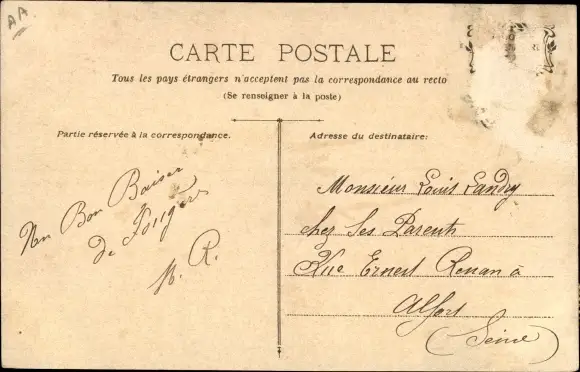 AA
CARTE POSTALE
Tous les pays étrangers n'acceptent pas la correspondance au recto
(Se renseigner à la poste)
Partie réservée à la correspondance.
Adresse du destinataire:
Un Bon Baiser
de Fougers
R.
Monsieur Louis Landry
chez Ses Parents
Rue Ernest Renan à
Alfort
(Seine)